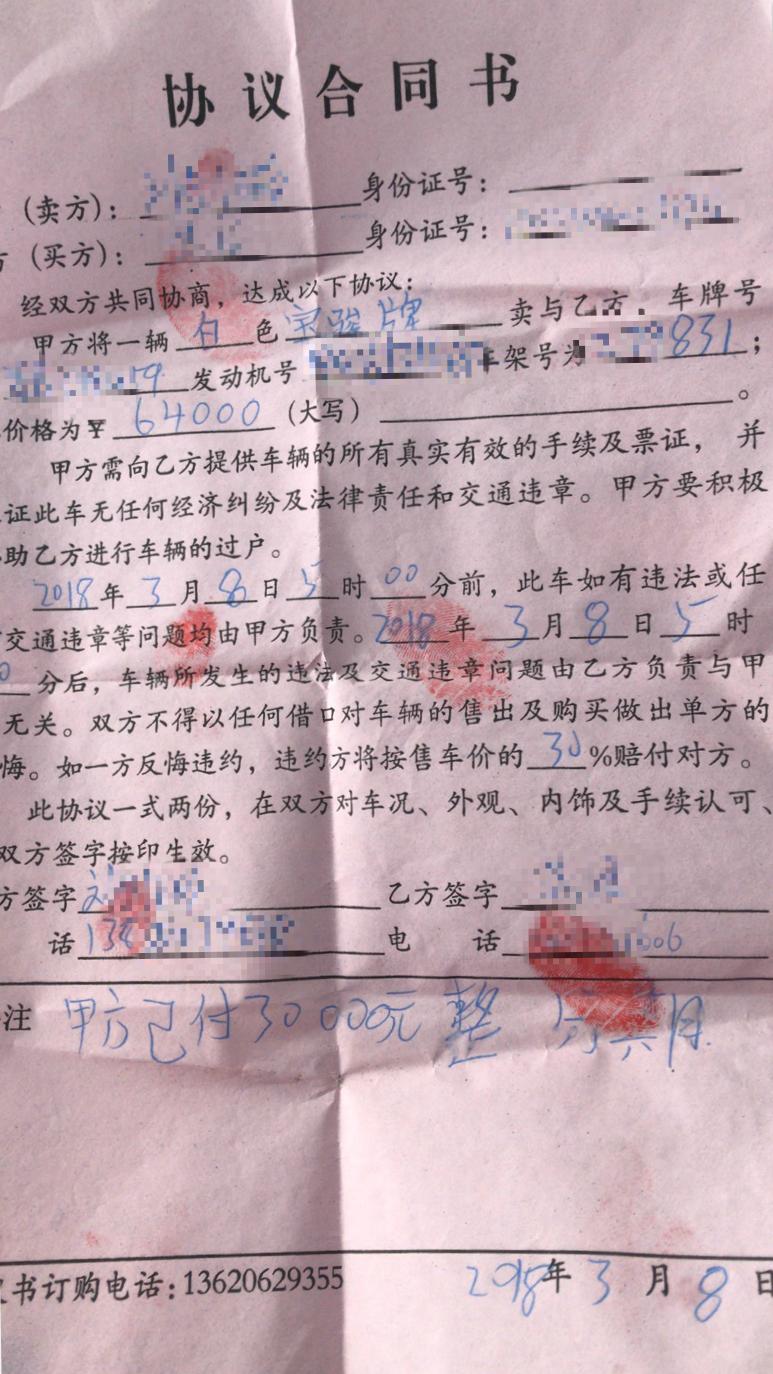 协议合同书
（卖方）： 身份证号：
（买方）： 身份证号：
经双方共同协商，达成以下协议：
甲方将一辆白色宝骏牌卖与乙方．车牌号
发动机号 车架号为 831；
价格为￥64000（大写）。
甲方需向乙方提供车辆的所有真实有效的手续及票证，并
证此车无任何经济纠纷及法律责任和交通违章。甲方要积极
助乙方进行车辆的过户。
2018年3月8日5时00分前，此车如有违法或任
交通违章等问题均由甲方负责。2018年3月8日5时
0分后，车辆所发生的违法及交通违章问题由乙方负责与甲
无关。双方不得以任何借口对车辆的售出及购买做出单方的
悔。如一方反悔违约，违约方将按售车价的30%赔付对方。
此协议一式两份，在双方对车况、外观、内饰及手续认可、
双方签字按印生效。
方签字 乙方签字
话 电话 606
注 甲方已付30000元整
书订购电话:13620629355 2018年3月8日